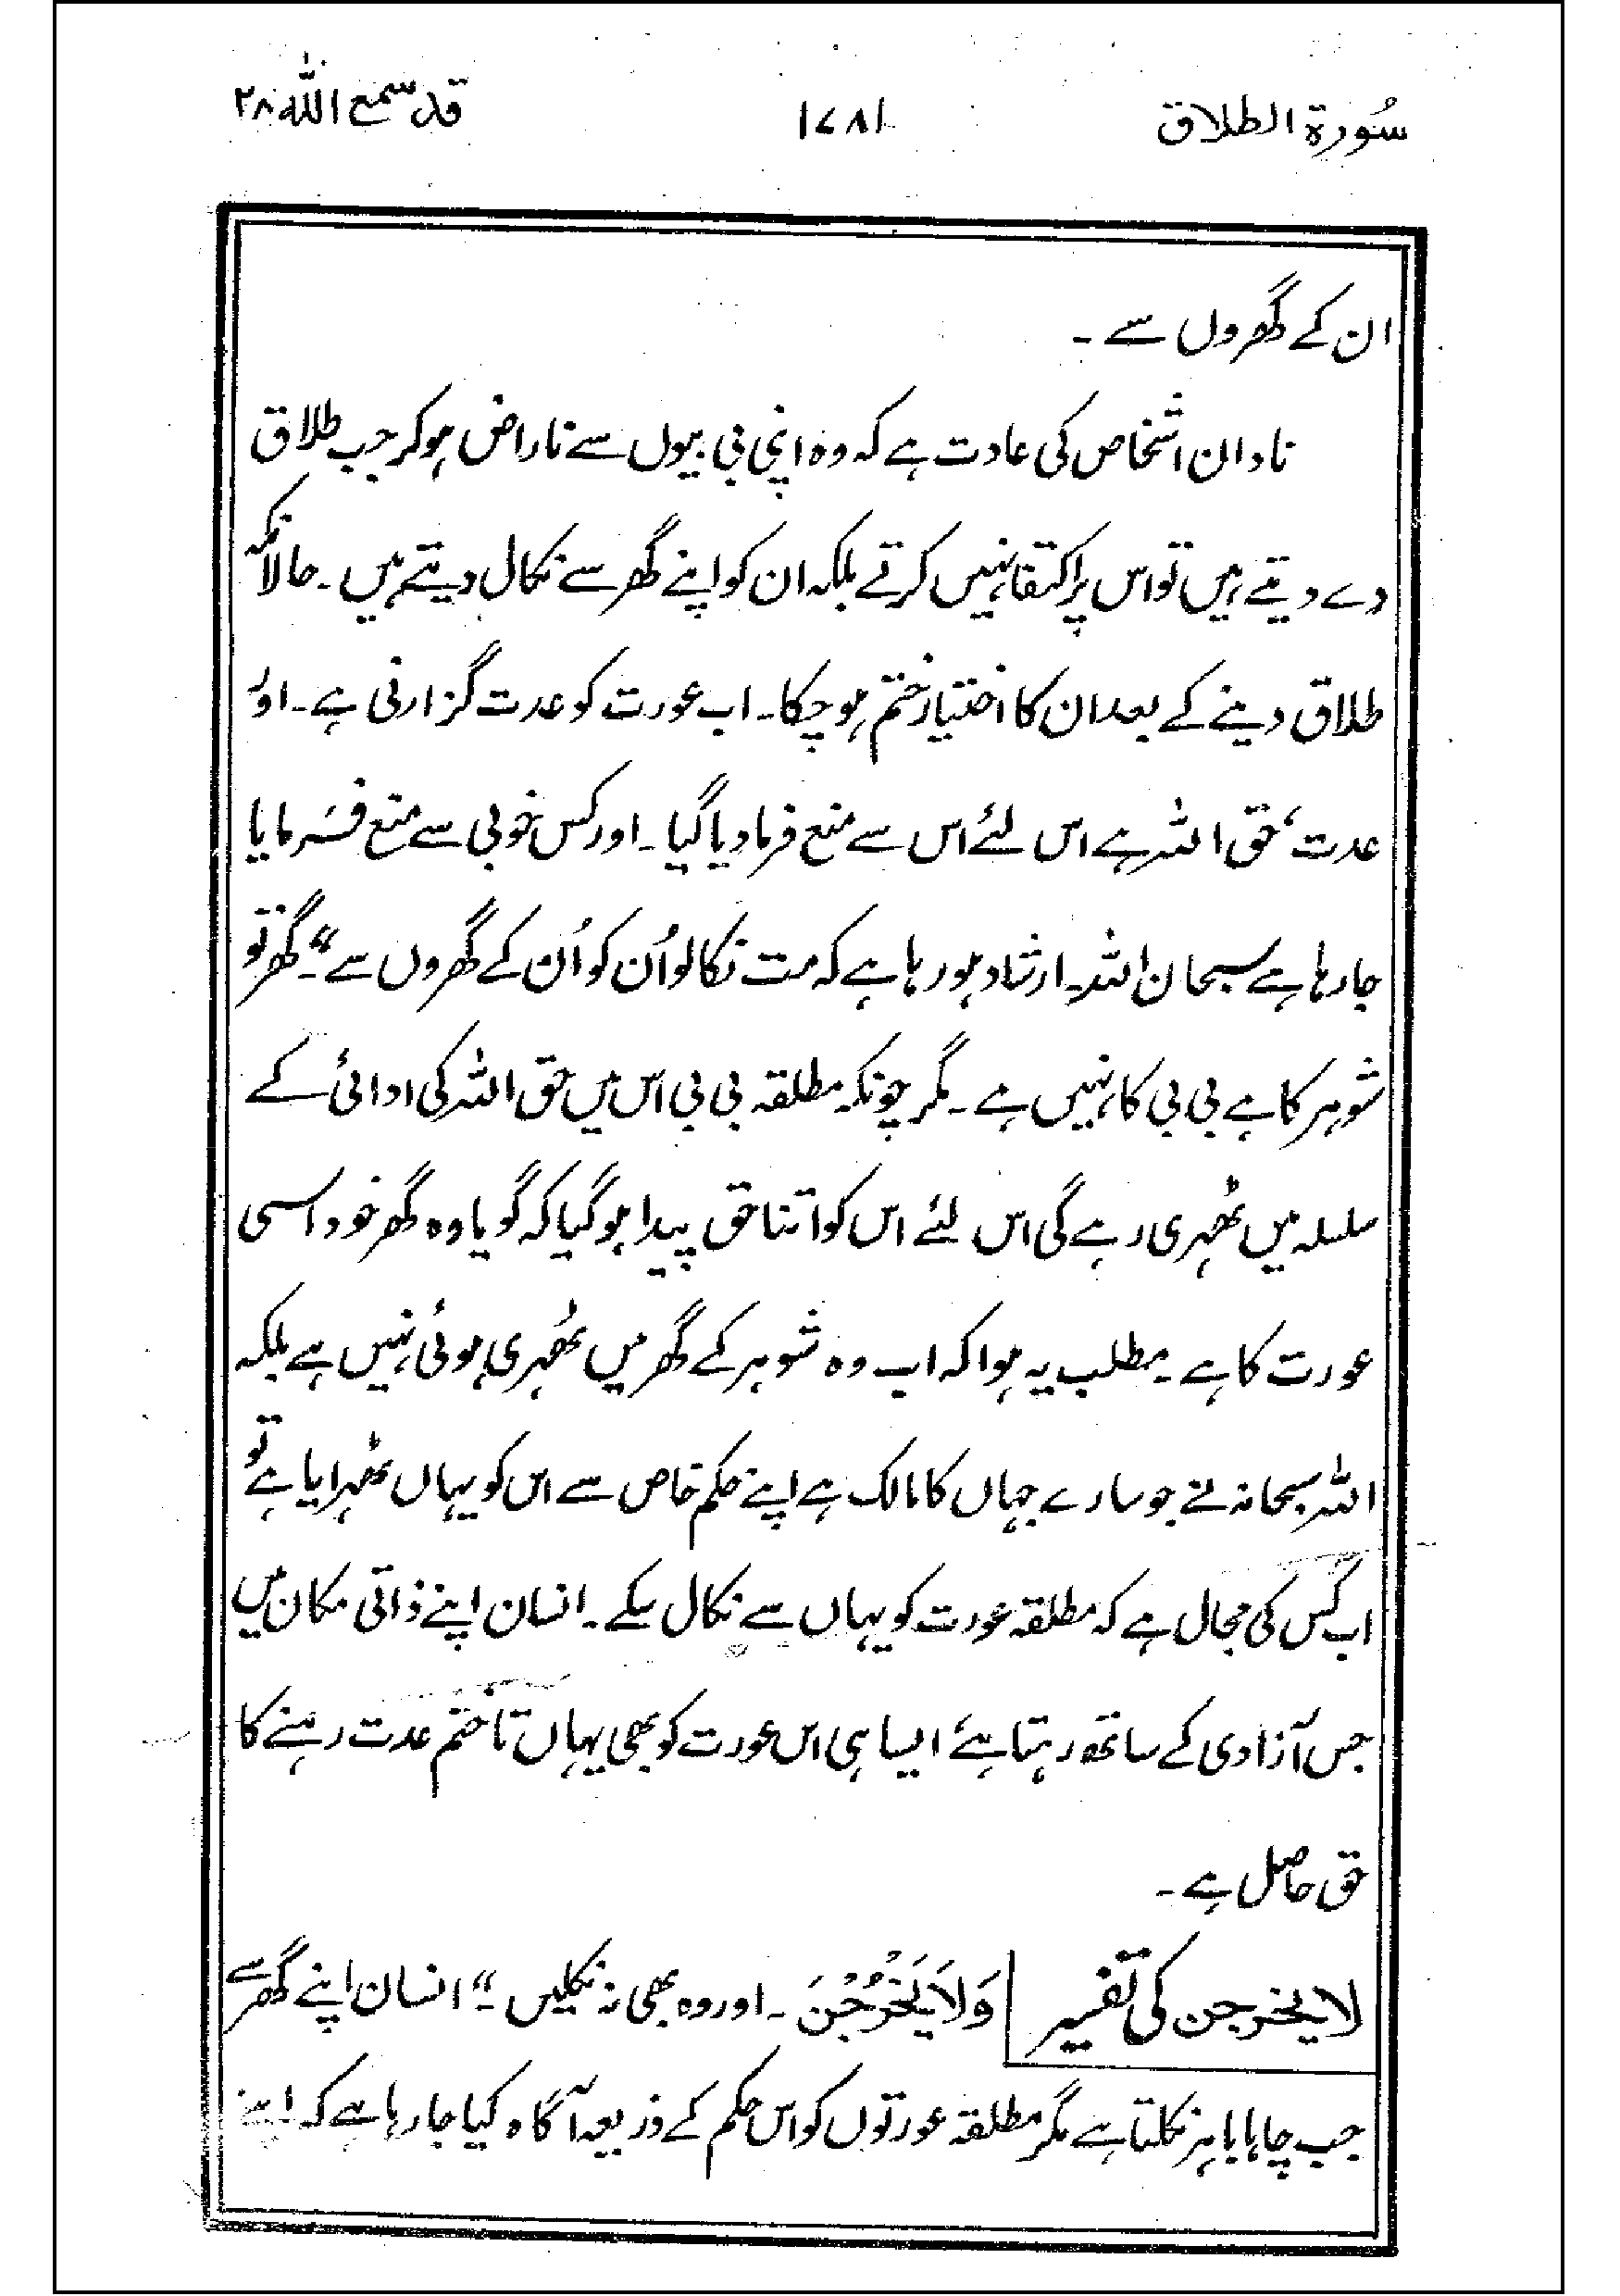 سُورة الطلاق ۱۷۸۱ قد سمع اللہ ۲۸
ان کے گھروں سے ۔
نادان اشخاص کی عادت ہے کہ وہ اپنی بی بیوں سے ناراض ہوکر جب طلاق
دے دیتے ہیں تو اس پر اکتفا نہیں کرتے بلکہ ان کو اپنے گھر سے نکال دیتے ہیں ۔ حالانکہ
طلاق دینے کے بعد ان کا اختیار ختم ہو چکا ۔ اب عورت کو عدت گزارنی ہے ۔ اور
عدت، حق اللہ ہے اس لئے اس سے منع فرما دیا گیا ۔ اور کس خوبی سے منع فرمایا
جا رہا ہے سبحان اللہ ۔ ارشاد ہو رہا ہے کہ مت نکالو اُن کو اُن کے گھروں سے “۔ گھر تو
شوہر کا ہے بی بی کا نہیں ہے ۔ مگر چونکہ مطلقہ بی بی اس میں حق اللہ کی ادائی کے
سلسلہ میں ٹھہری رہے گی اس لئے اس کو اتنا حق پیدا ہوگیا کہ گویا وہ گھر خود اسی
عورت کا ہے ۔ مطلب یہ ہوا کہ اب وہ شوہر کے گھر میں ٹھہری ہوئی نہیں ہے بلکہ
اللہ سبحانہ نے جو سارے جہاں کا مالک ہے اپنے حکم خاص سے اس کو یہاں ٹھہرایا ہے تو
اب کس کی مجال ہے کہ مطلقہ عورت کو یہاں سے نکال سکے ۔ انسان اپنے ذاتی مکان میں
جس آزادی کے ساتھ رہتا ہے ایسا ہی اس عورت کو بھی یہاں تا ختم عدت رہنے کا
حق حاصل ہے ۔
لا یخرجن کی تفسیر وَلَا یَخْرُجْنَ ۔ اور وہ بھی نہ نکلیں ۔“ انسان اپنے گھر سے
جب چاہا باہر نکلتا ہے مگر مطلقہ عورتوں کو اس حکم کے ذریعہ آگاہ کیا جا رہا ہے کہ اپنے